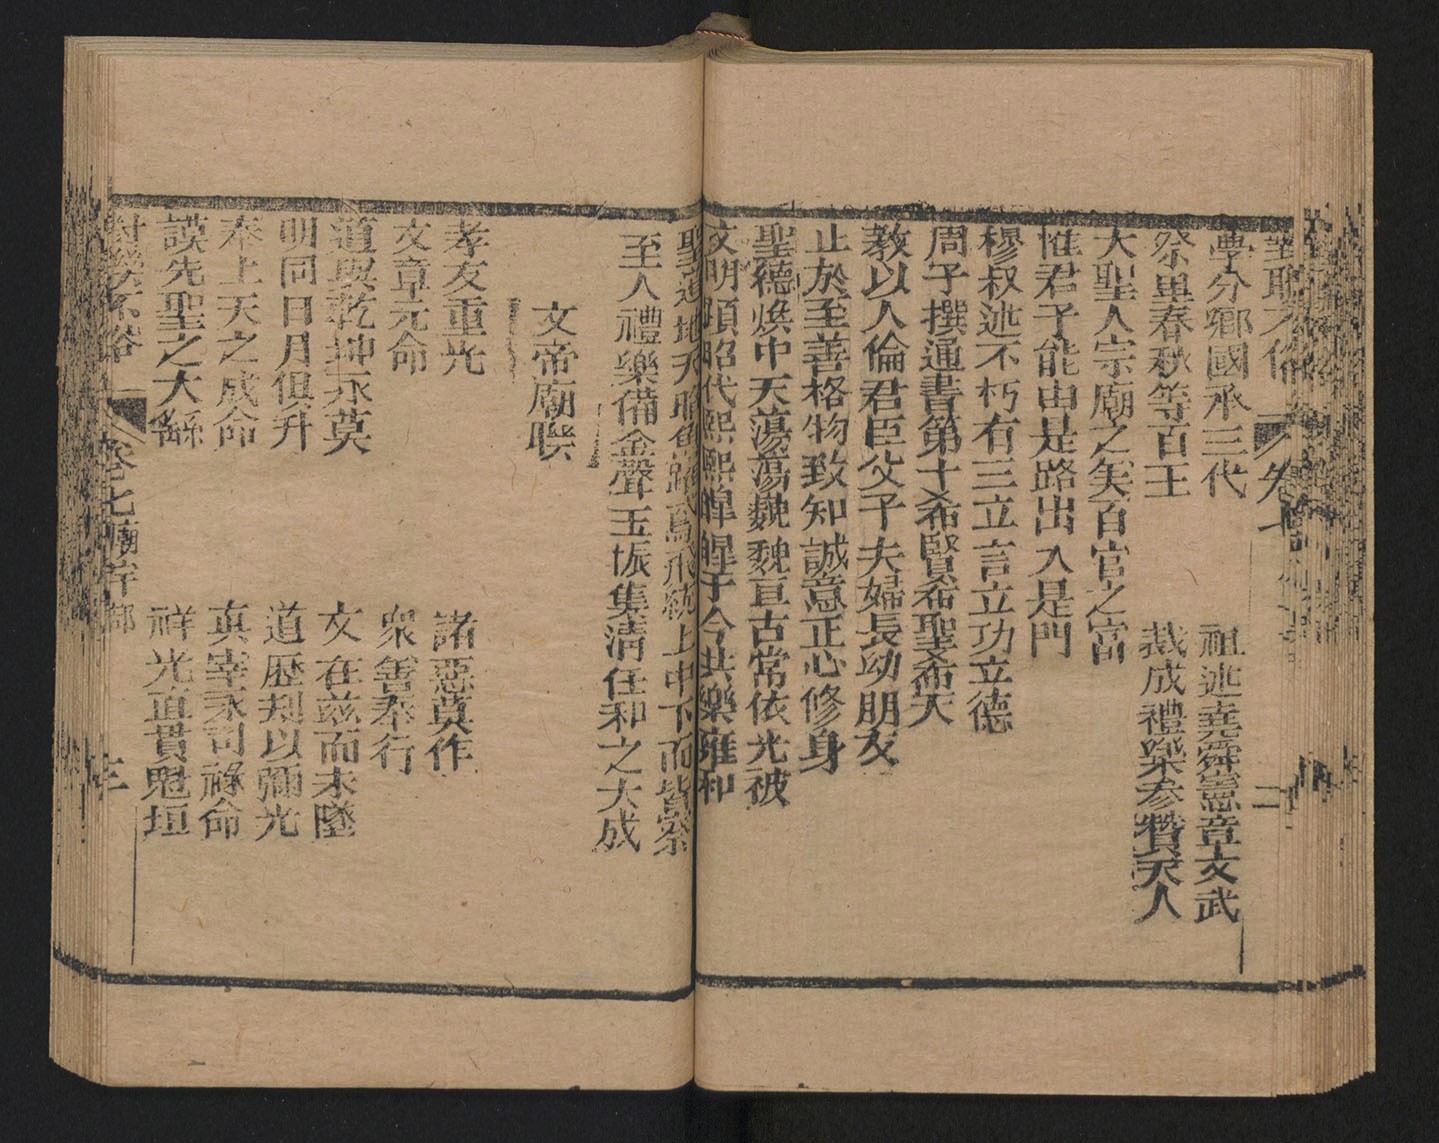 對聯不俗 卷七 二
學分鄉國承三代 祖述堯舜憲章文武
祭畢春秋等百王 裁成禮樂參贊天人
大聖人宗廟之美百官之富
惟君子能由是路出入是門
穆叔述不朽有三立言立功立德
周子撰通書第十希賢希聖希天
教以人倫君臣父子夫婦長幼朋友
止於至善格物致知誠意正心修身
聖德煥中天蕩蕩巍巍亘古常依光被
文明頌昭代熙熙皥皥于今共樂雍和
聖道地天昭魚躍鳶飛統上中下而皆察
至人禮樂備金聲玉振集清任和之大成
文帝廟聯
孝友重光 諸惡莫作
文章元命 衆善奉行
道與乾坤永莫 文在茲而未墜
明同日月俱升 道歷刼以彌光
奉上天之成命 真宰永司祿命
謨先聖之大繇 祥光直貫魁垣
對聯不俗 卷七廟宇部 三